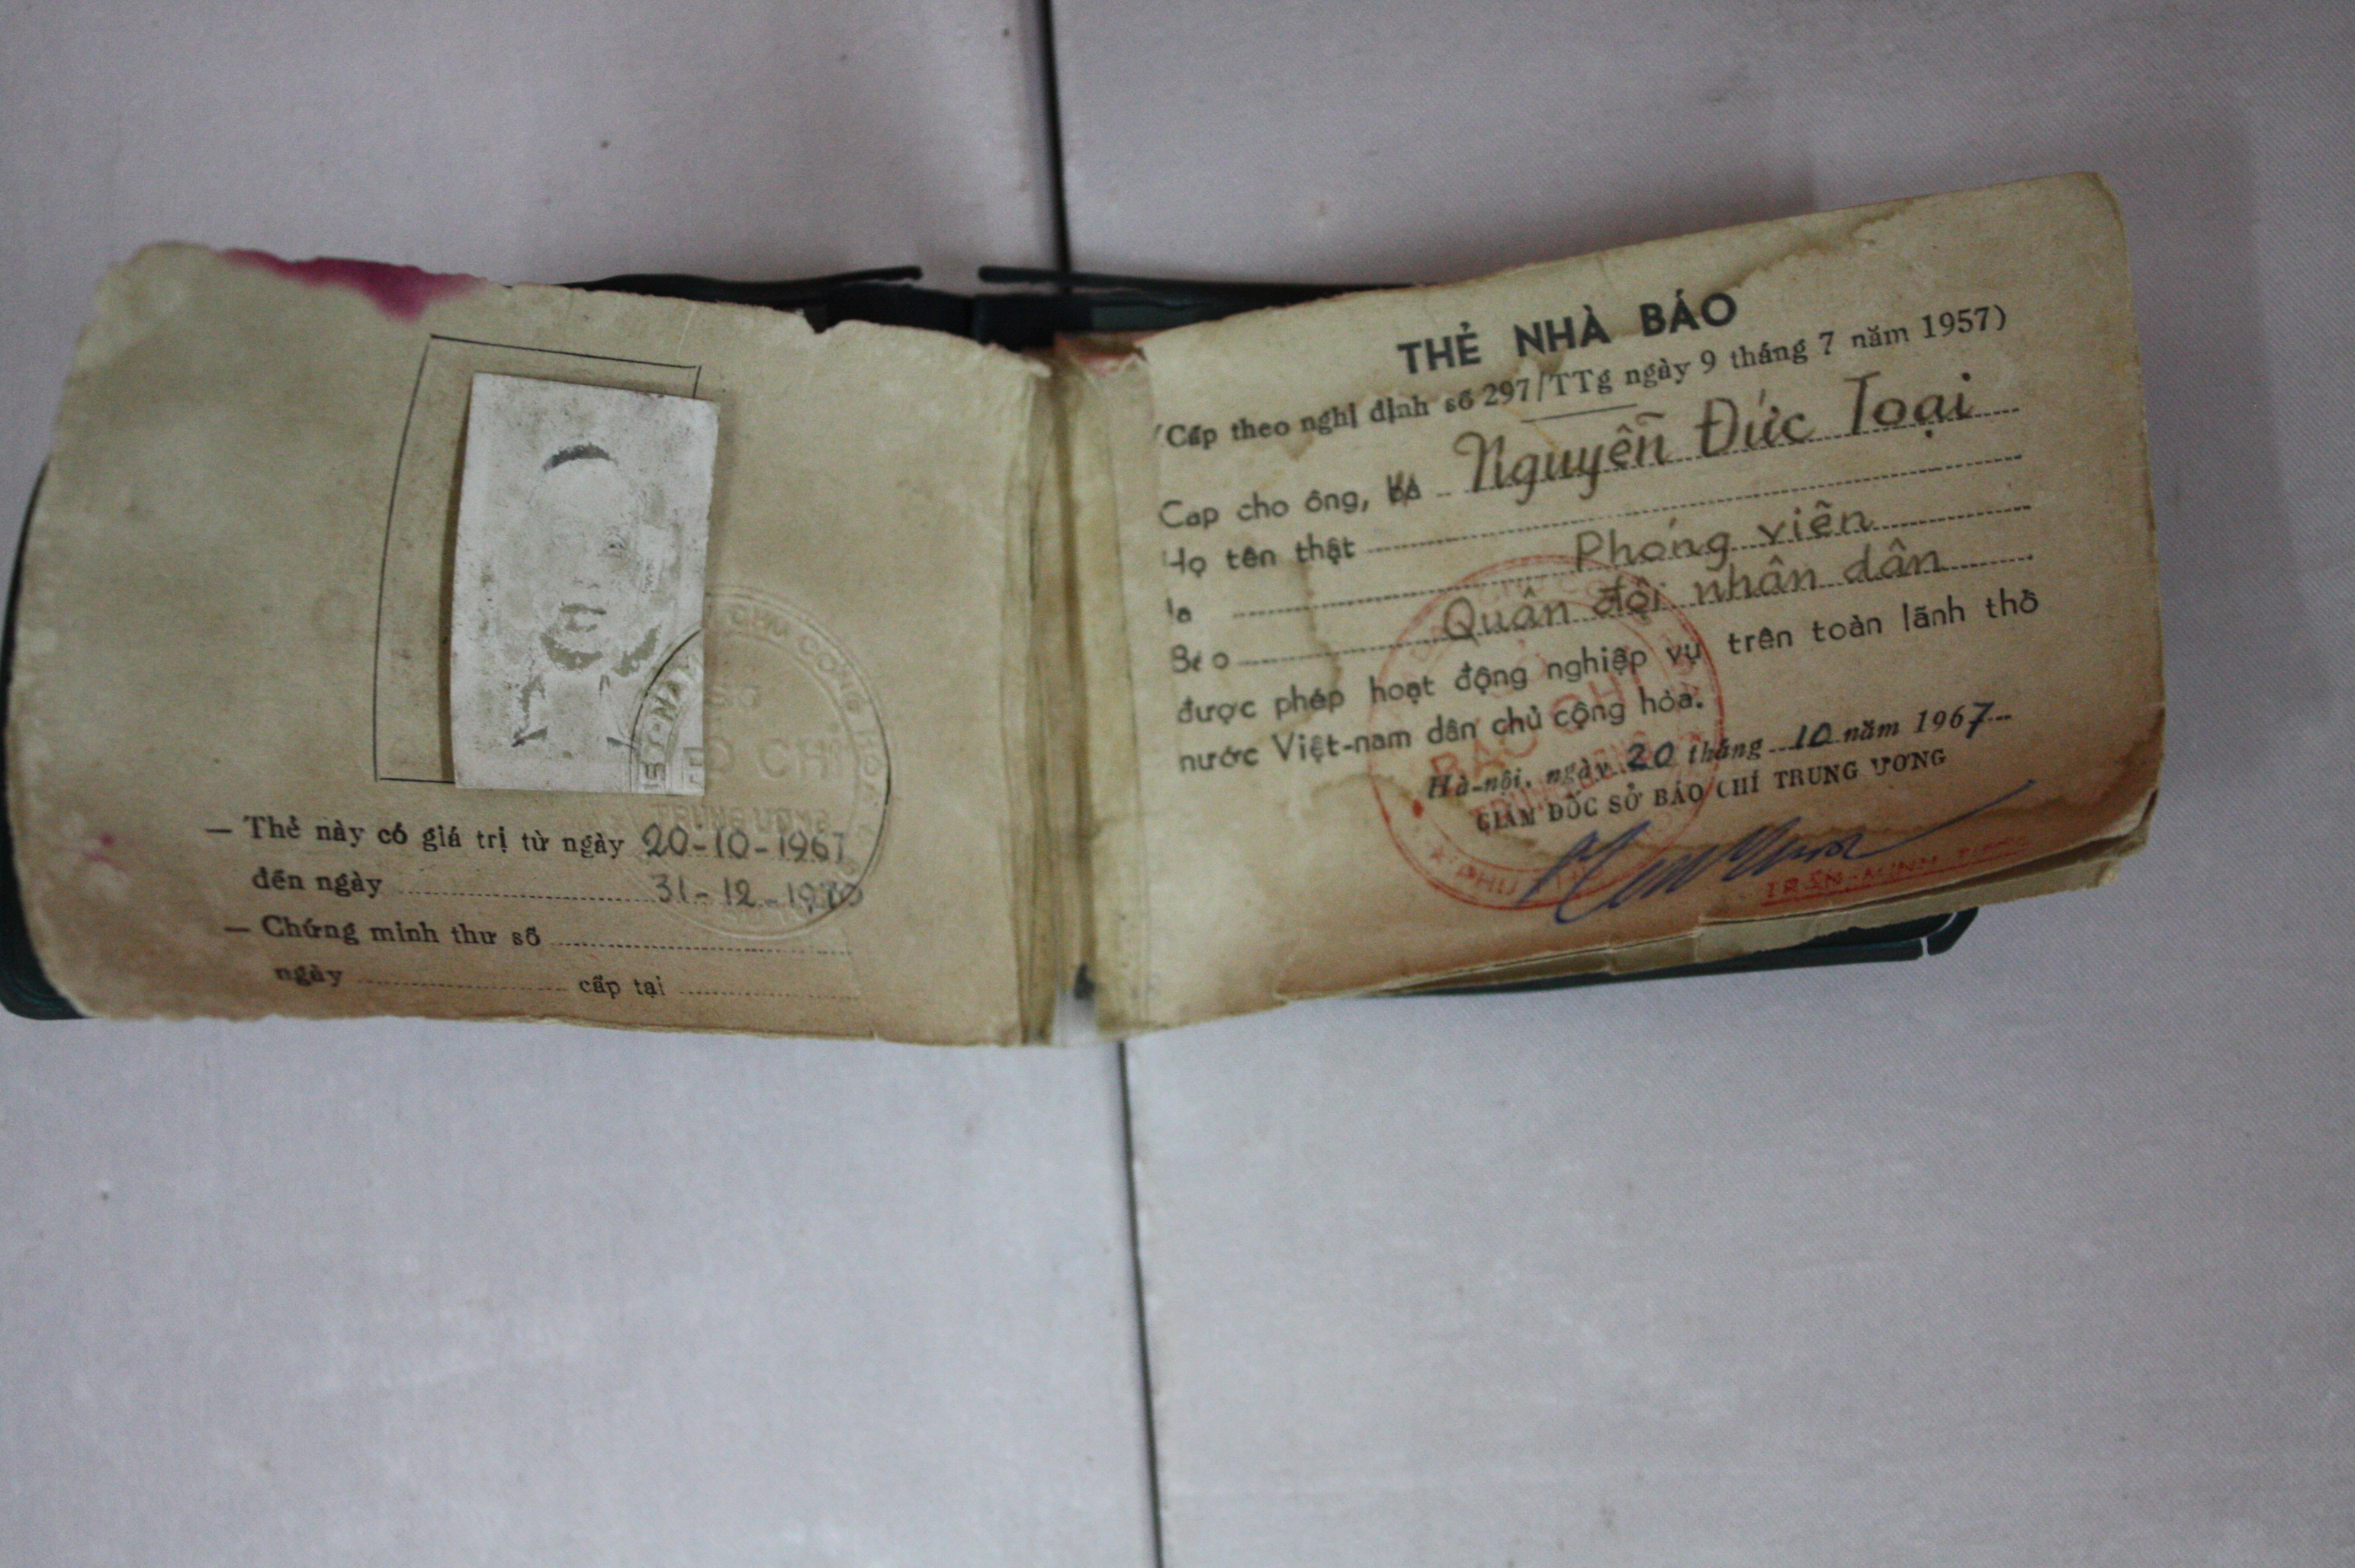 — Thẻ này có giá trị từ ngày 20-10-1967
đến ngày 31-12-1970
— Chứng minh thư số
ngày cấp tại
THẺ NHÀ BÁO
(Cấp theo nghị định số 297/TTg ngày 9 tháng 7 năm 1957)
Cấp cho ông, bà Nguyễn Đức Toại
Họ tên thật
là Phóng viên
Báo Quân đội nhân dân
được phép hoạt động nghiệp vụ trên toàn lãnh thổ
nước Việt-nam dân chủ cộng hòa.
Hà-nội, ngày 20 tháng 10 năm 1967
GIÁM ĐỐC SỞ BÁO CHÍ TRUNG ƯƠNG
BÁO CHÍ
TRUNG ƯƠNG